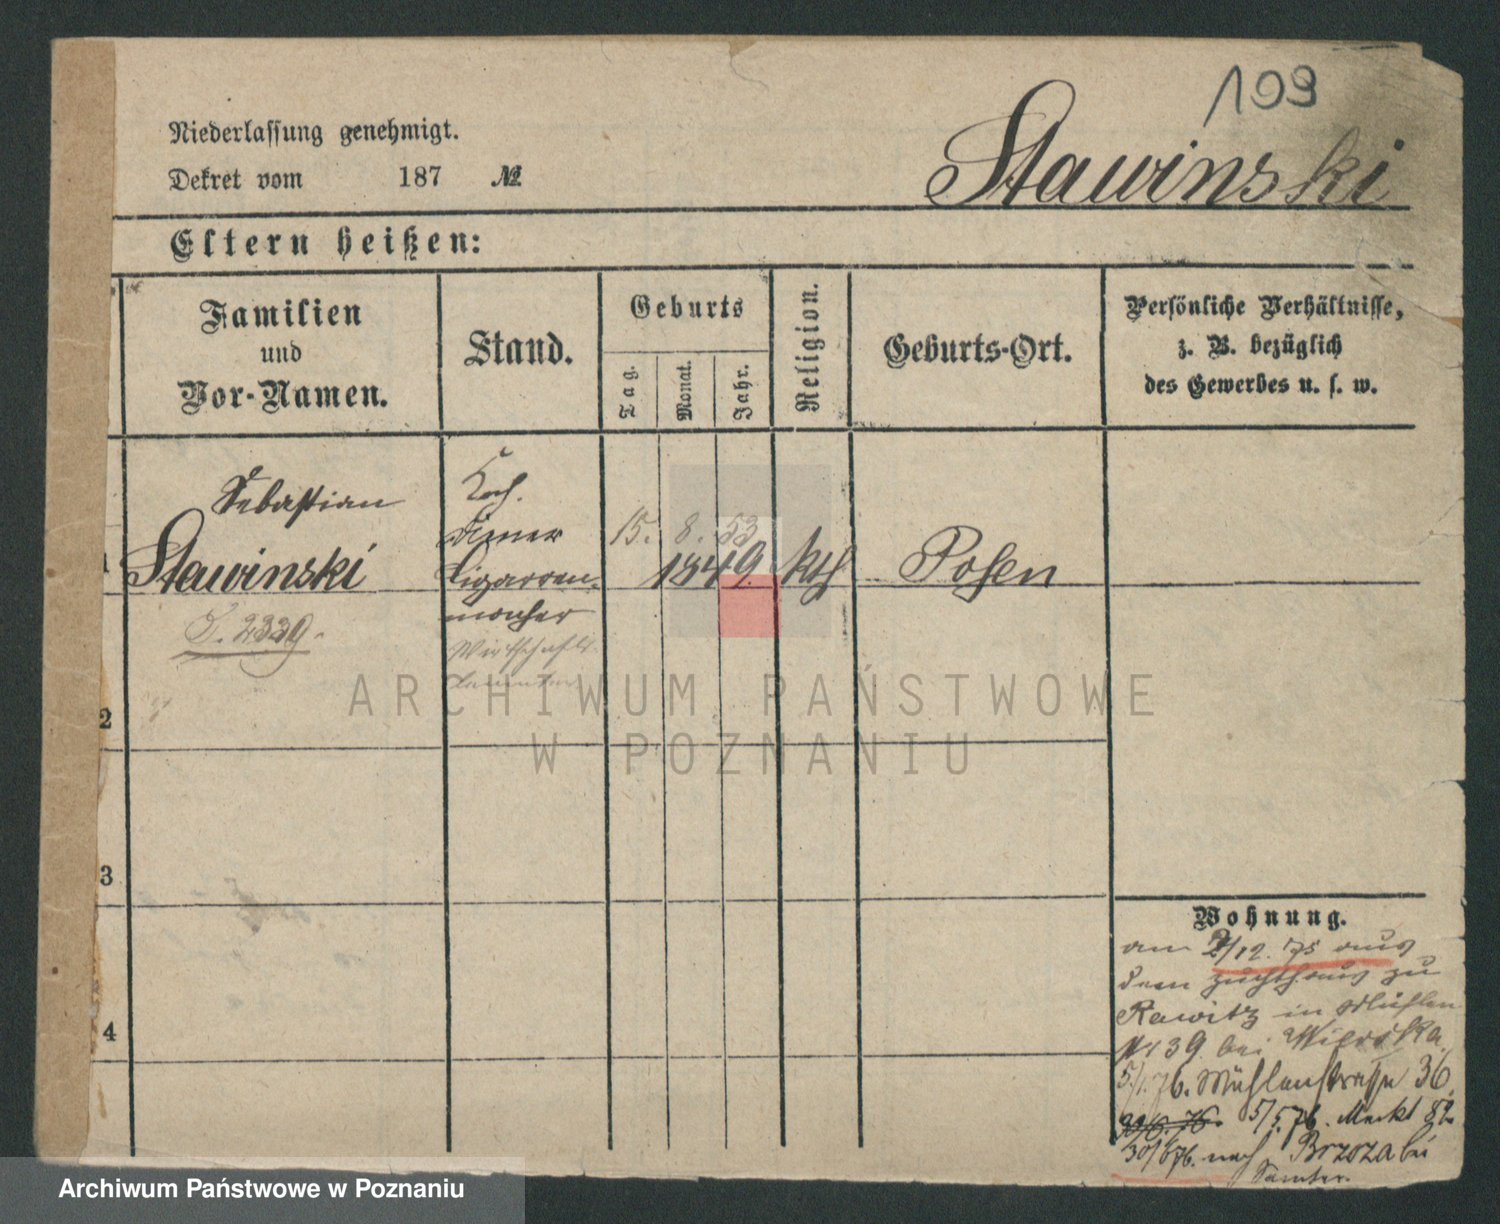 109
Niederlassung genehmigt.
Dekret vom 187 №
Stawinski
Eltern heißen:
Familien
und
Vor-Namen.
Stand.
Geburts
Tag.
Monat.
Jahr.
Religion.
Geburts-Ort.
Persönliche Verhältnisse,
z. B. bezüglich
des Gewerbes u. s. w.
1
Sebastian
Stawinski
J. 2339.
Koch.
Diener
Cigarren-
macher
Wirthschafts
15. 8. 53
1849.
kth
Posen
2
3
4
Wohnung.
am 2/12. 75 aus
dem Zuchthaus zu
Rawitz in Mühlen
Nr 39 bei
5/1. 76. Mühlenstrasse 36.
30/6. 76. 5/5. 76. Markt 82
30/6 76. nach Brzoza bei
Samter.
ARCHIWUM PAŃSTWOWE
W POZNANIU
Archiwum Państwowe w Poznaniu